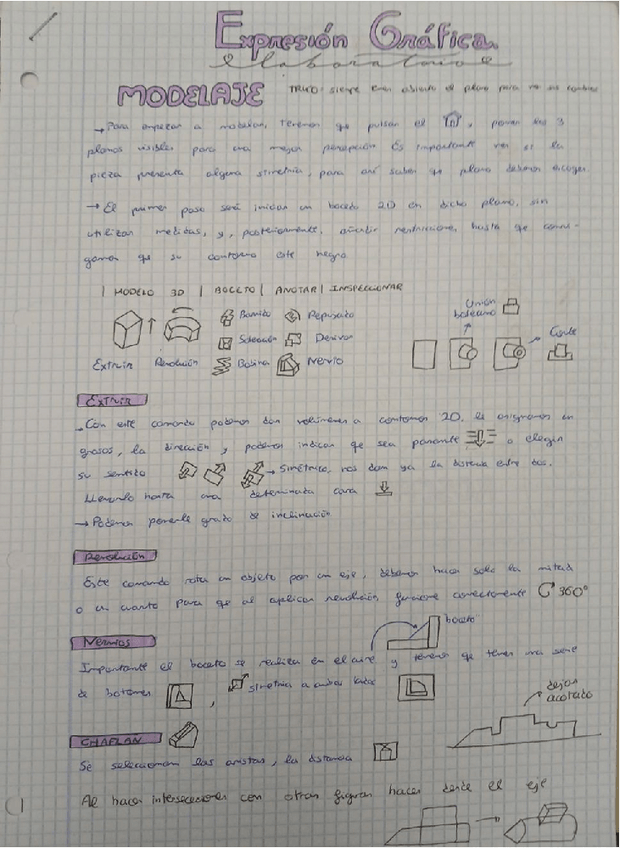 Expresión Gráfica
laboratorio
MODELAJE TRUCO: siempre tener abierto el plano para no
→ Para empezar a modelar, tenemos que pulsar el , poner los 3
planos visibles para una mejor percepción. Es importante ver si la
pieza presenta alguna simetría, para así saber que plano debemos escoger.
→ El primer paso será iniciar un boceto 2D en dicho plano, sin
utilizar medidas, y, posteriormente, añadir restricciones, hasta que consi-
gamos que su contorno este negro.
| MODELO 3D | BOCETO | ANOTAR | INSPECCIONAR
Unión
booleano
Barrido Repujado Corte
Solevación Derivar
Extruir Revolución Bobina Nervio
Extruir
→ Con este comando podemos dar volúmenes a contornos 2D, le asignamos un
grosor, la dirección y podemos indicar que sea pasante o elegir
su sentido → Simétrico, nos dan ya la distancia entre dos.
Llevarlo hasta una determinada cara
→ Podemos ponerle grado de inclinación
Revolución
Este comando rota un objeto por un eje, debemos hacer solo la mitad
o un cuarto para que al aplicar revolución funcione correctamente 360º
boceto
Nervios
Importante el boceto se realiza en el aire y tenemos que tener una serie
de botones , simetría a ambos lados
dejar
acotado
CHAFLÁN
Se seleccionan las aristas, la distancia
Al hacer intersecciones con otras figuras hacer desde el eje